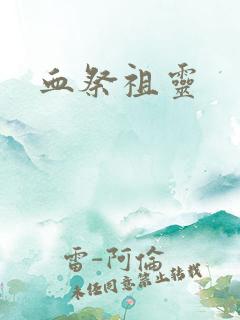 血祭祖靈
雷-阿倫
未经同意禁止转载